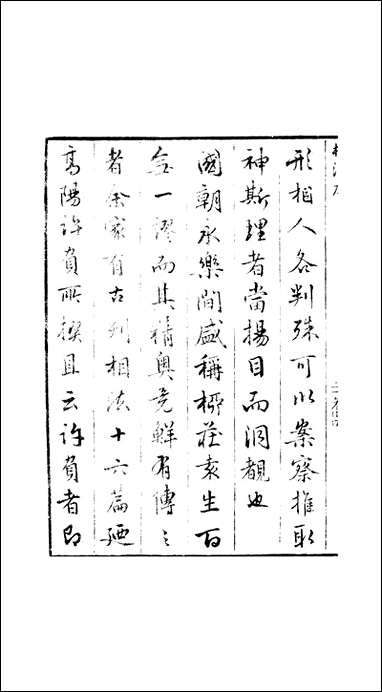 形相人各判殊可以案察推取
神斯理者當揚目而洞覩也
國朝永樂間盛稱栁莊袁生百
無一謬而其精奧竟鮮有傳之
者余家有古列相法十六篇廼
髙陽許負所撰且云許負者即